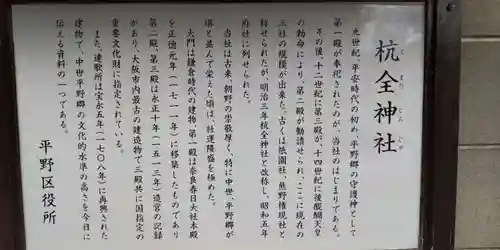 杭全神社
くまたじんじゃ
九世紀、平安時代の初め、平野郷の守護神として
第一殿が奉祀されたのが、当社のはじまりである。
その後、十二世紀に第三殿が、十四世紀に後醍醐天皇
の勅命により、第二殿が勧請られ、ここに現在の
三社の規模が出来た。古くは祇園社、熊野権現社と
称せられたが、明治三年杭全神社と改称し、昭和五年
府社に列せられた。
当社は古来、朝野の崇敬厚く、特に中世、平野郷が
堺と並んで栄えた頃は、社運隆盛を極めた。
大門は鎌倉時代の建物、第一殿は奈良春日大社本殿
を正徳元年(一七一一年)に移築したものであり
第二殿、第三殿は永正十年(一五一三年)造営の記録
があり、大阪市内最古の建造物で三殿共に国指定の
重要文化財に指定されている。
また、連歌所は宝永五年(一七〇八年)に再興された
建物で、中世平野郷の文化的水準の高さを今日に
伝える資料の一つである。
平野区役所